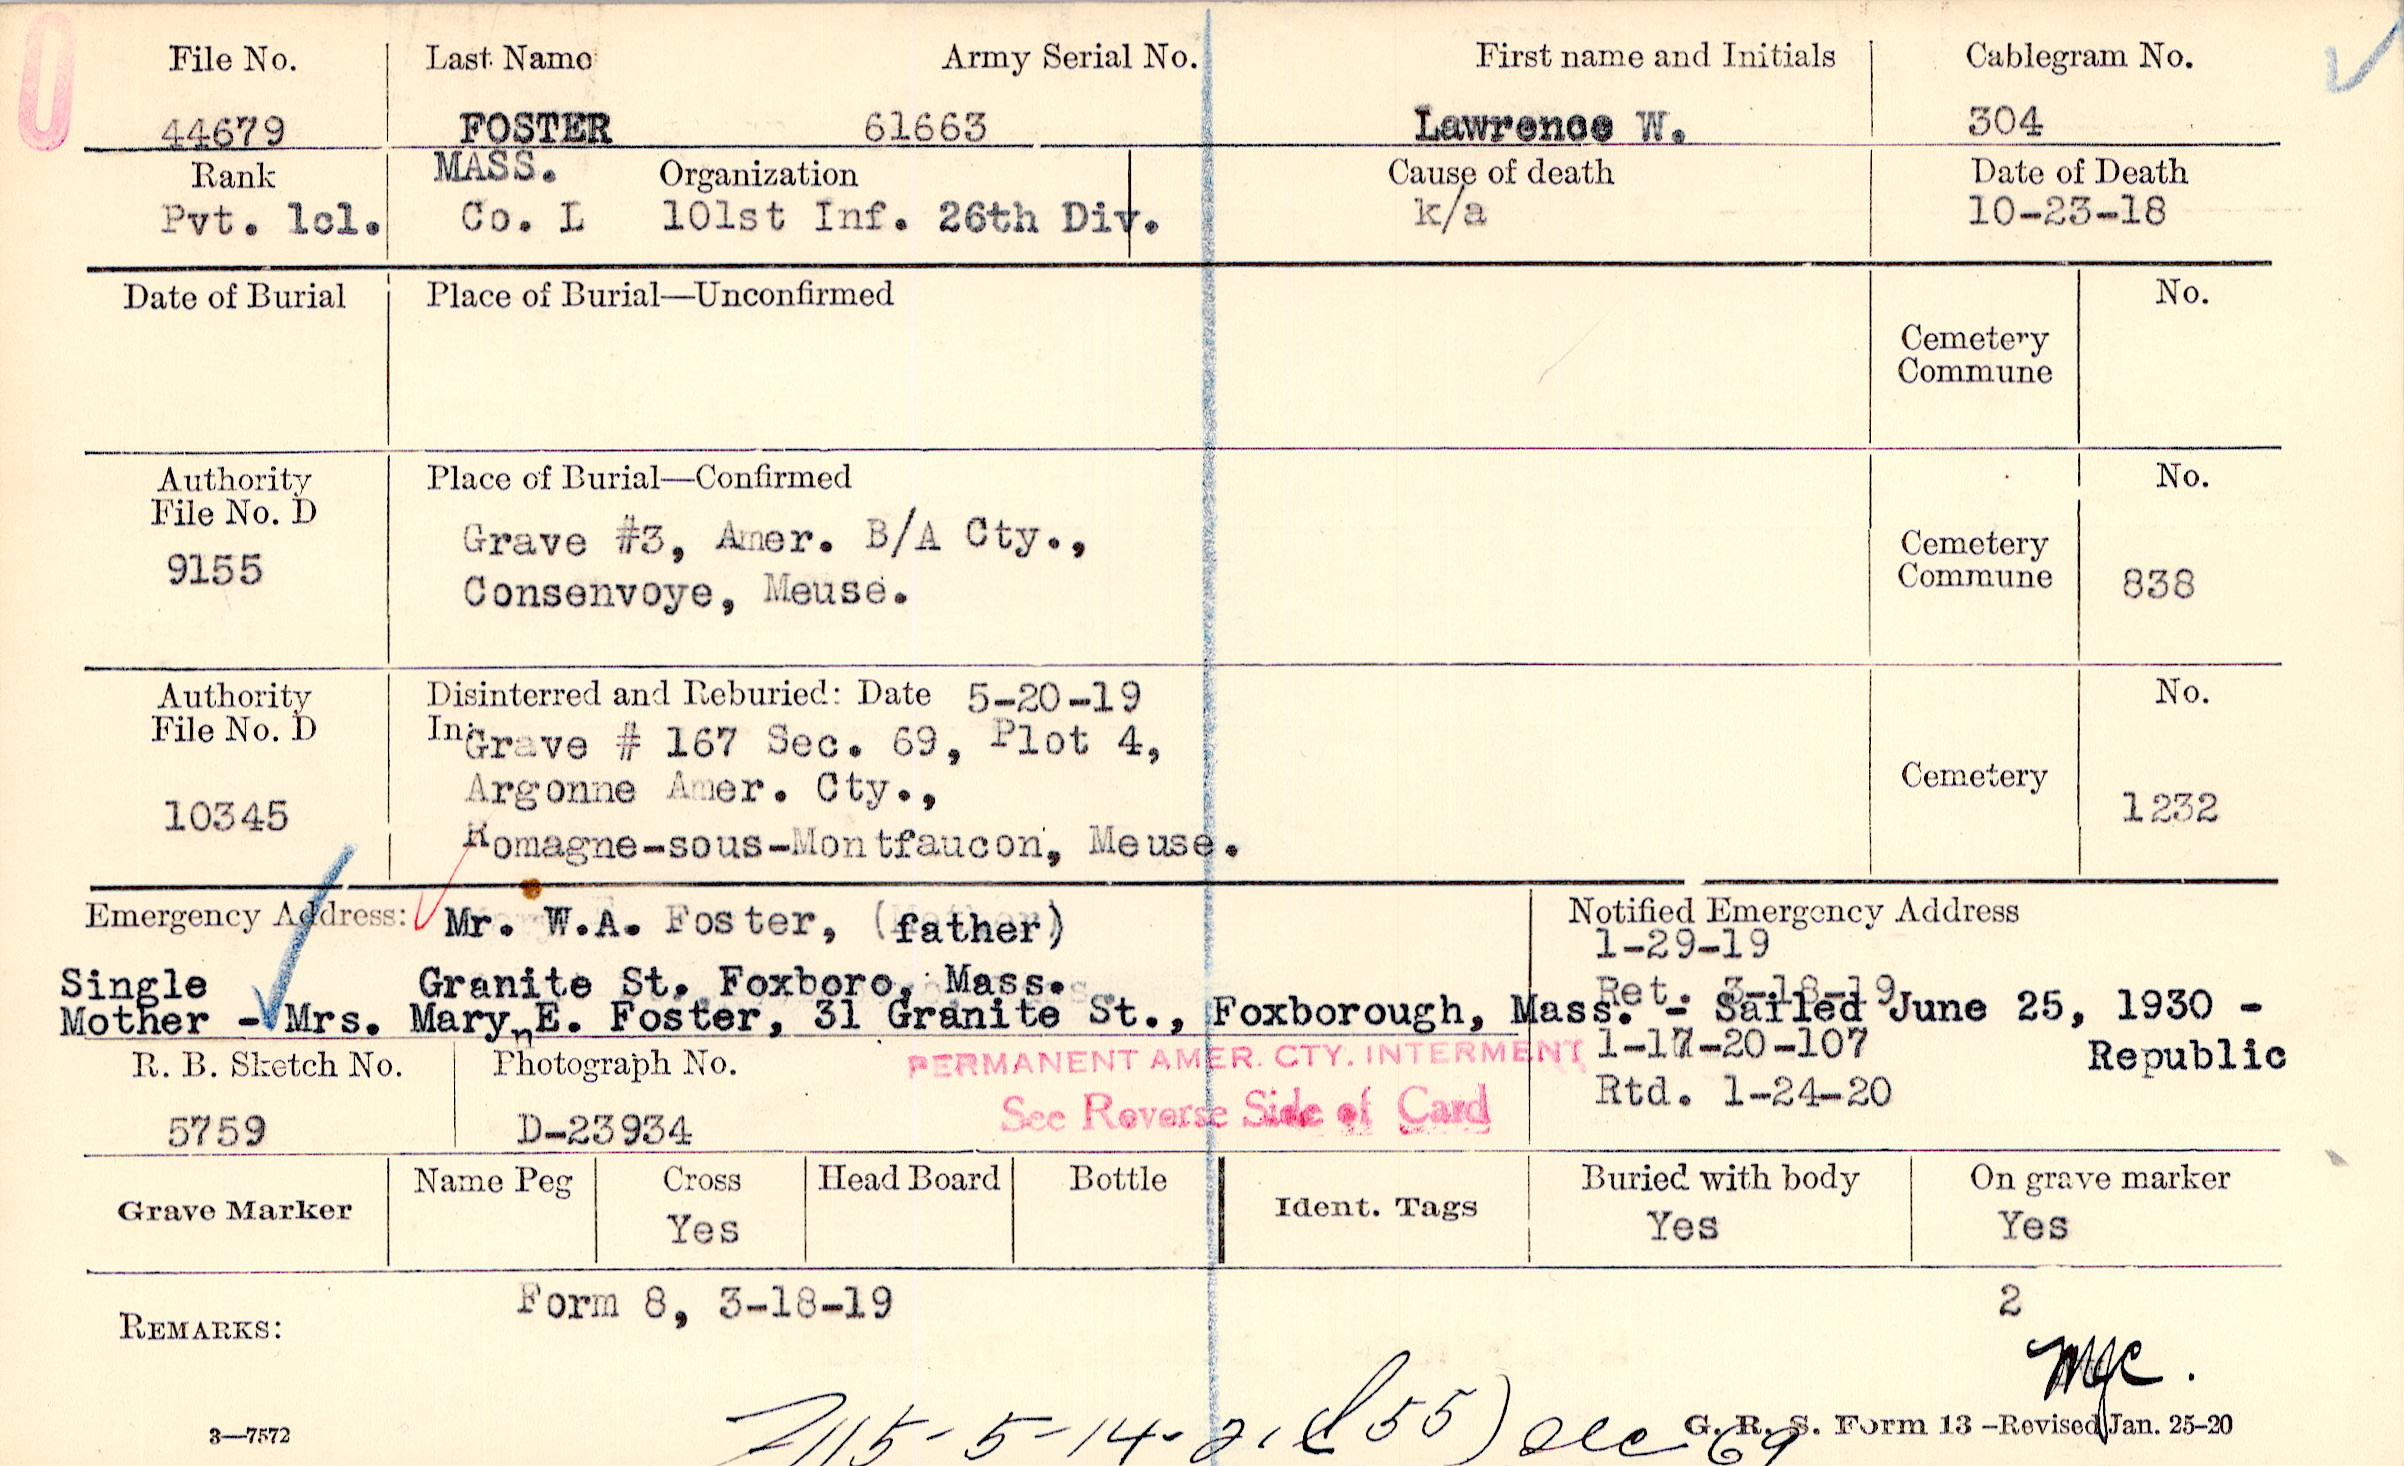 File No. Last Name Army Serial No. First name and Initials Cablegram No.
44679 FOSTER 61663 Lawrence W. 304
Rank MASS. Organization Cause of death Date of Death
Pvt. 1cl. Co. L 101st Inf. 26th Div. k/a 10-23-18
Date of Burial Place of Burial—Unconfirmed No.
Cemetery
Commune
Authority Place of Burial—Confirmed No.
File No. D
Grave #3, Amer. B/A Cty., Cemetery
9155 Consenvoye, Meuse. Commune 838
Authority Disinterred and Reburied: Date 5-20-19 No.
File No. D In: Grave # 167 Sec. 69, Plot 4,
Argonne Amer. Cty., Cemetery
10345 Romagne-sous-Montfaucon, Meuse. 1232
Emergency Address: Mr. W.A. Foster, (father) Notified Emergency Address
1-29-19
Single Granite St. Foxboro, Mass. Ret. 3-18-19
Mother - Mrs. Mary E. Foster, 31 Granite St., Foxborough, Mass. - Sailed June 25, 1930 -
1-17-20-107 Republic
R. B. Sketch No. Photograph No. PERMANENT AMER. CTY. INTERMENT
See Reverse Side of Card Rtd. 1-24-20
5759 D-23934
Grave Marker Name Peg Cross Head Board Bottle Ident. Tags Buried with body On grave marker
Yes Yes Yes
Form 8, 3-18-19 2
REMARKS:
3—7572 G. R. S. Form 13 -Revised Jan. 25-20